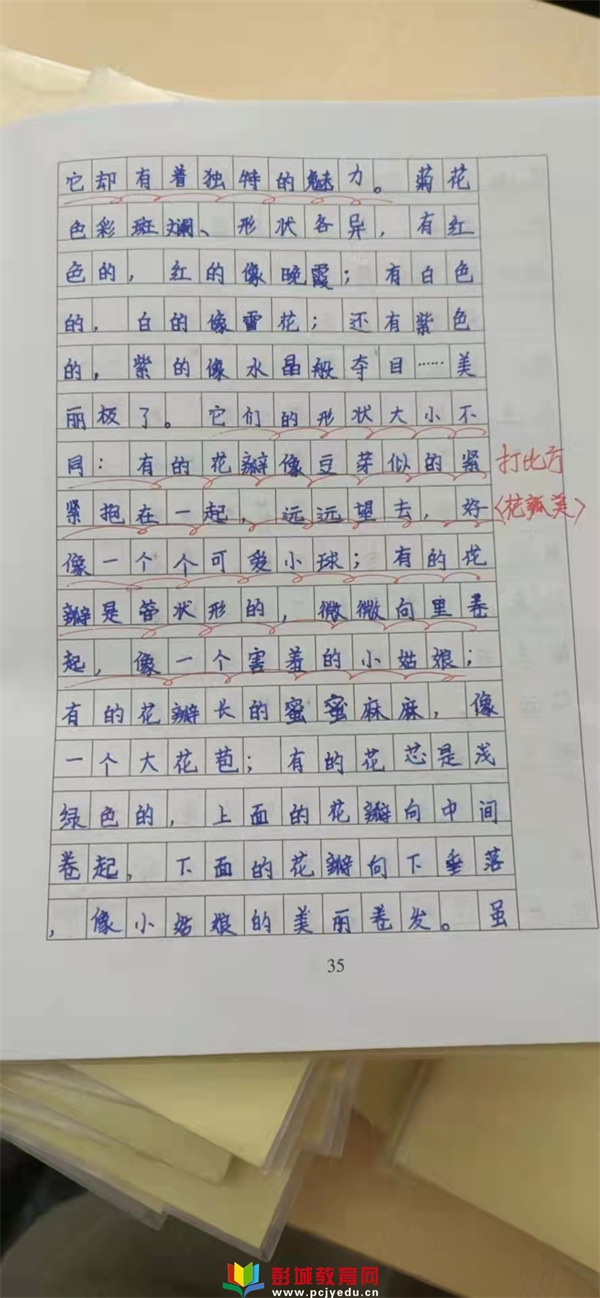 它却有着独特的魅力。菊花
色彩斑斓、形状各异，有红
色的，红的像晚霞；有白色
的，白的像雪花；还有紫色
的，紫的像水晶般夺目……美
丽极了。它们的形状大小不
同：有的花瓣像豆芽似的紧
打比方
紧抱在一起，远远望去，好
〈花瓣美〉
像一个个可爱小球；有的花
瓣是管状形的，微微向里卷
起，像一个害羞的小姑娘；
有的花瓣长的蜜蜜麻麻，像
一个大花苞；有的花芯是浅
绿色的，上面的花瓣向中间
卷起，下面的花瓣向下垂落
，像小姑娘的美丽卷发。虽
35
彭城教育网
www.pcjyedu.cn